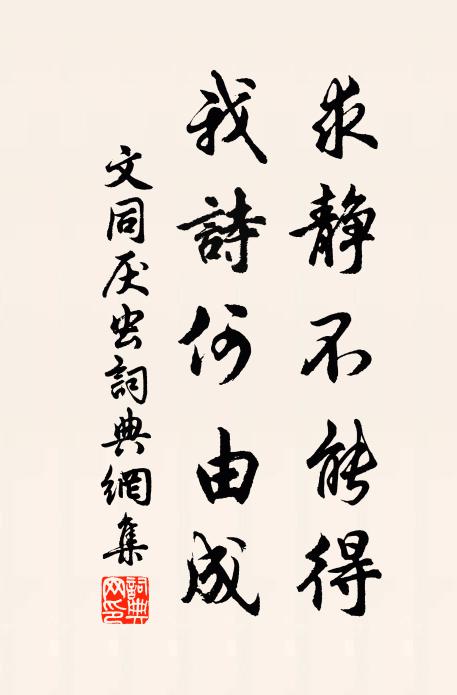 求静不能得
我詩何由成
文同厌虫詞典網集
詞典網印